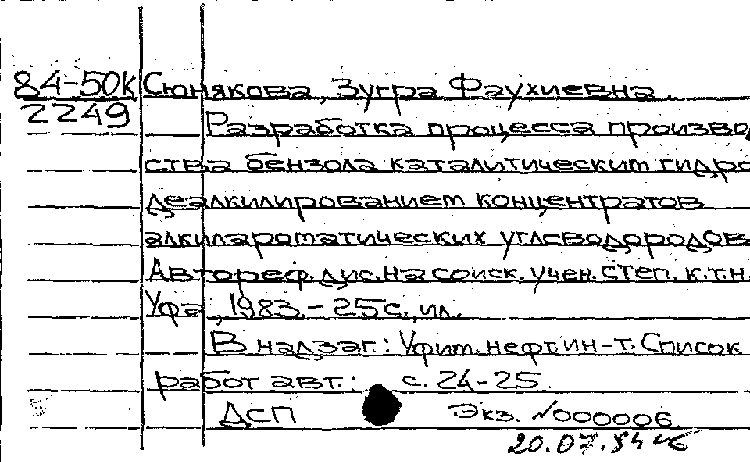 84-50к Сюнякова, Зугра Фаухиевна.
2249 Разработка процесса производ
ства бензола каталитическим гидро
деалкилированием концентратов
алкилароматических углеводородов
Автореф. дис. на соиск. учен. степ. к.т.н
Уфа, 1983. - 25с., ил.
В надзаг.: Уфим. нефт. ин-т. Список
работ авт.: с. 24-25.
ДСП Экз. №000006.
20.07.84